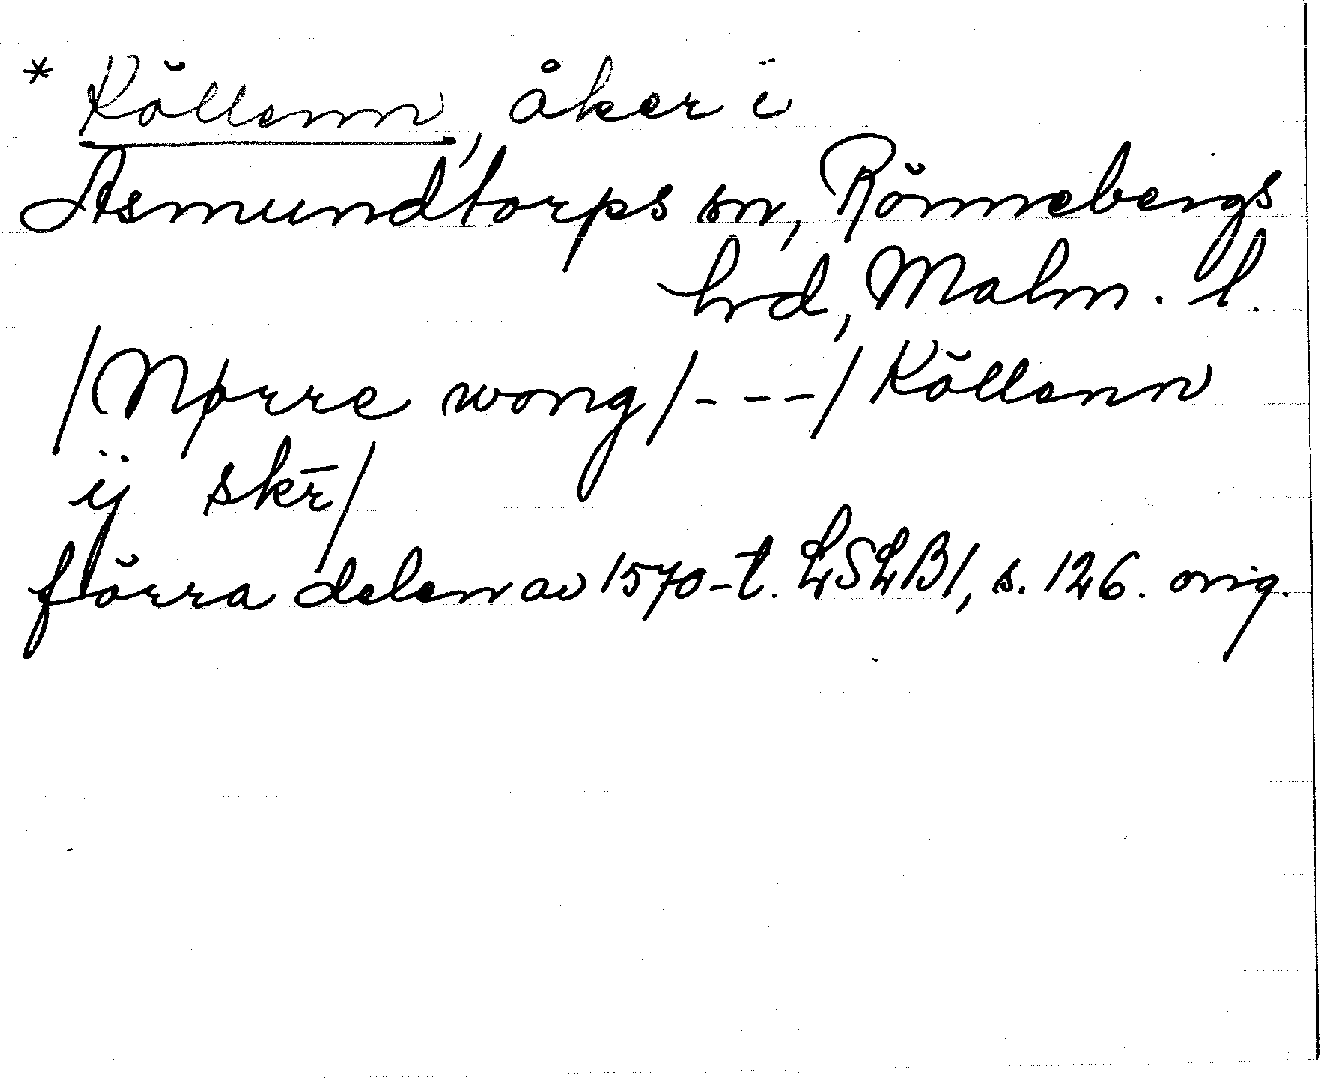 * Köllenn, åker i
Asmundtorps sn, Rönnebergs
hrd, Malm. l.
/Nørre wong/---/Köllenn
ij skr̄/
förra delen av 1570-t. LSLB1, s. 126. orig.